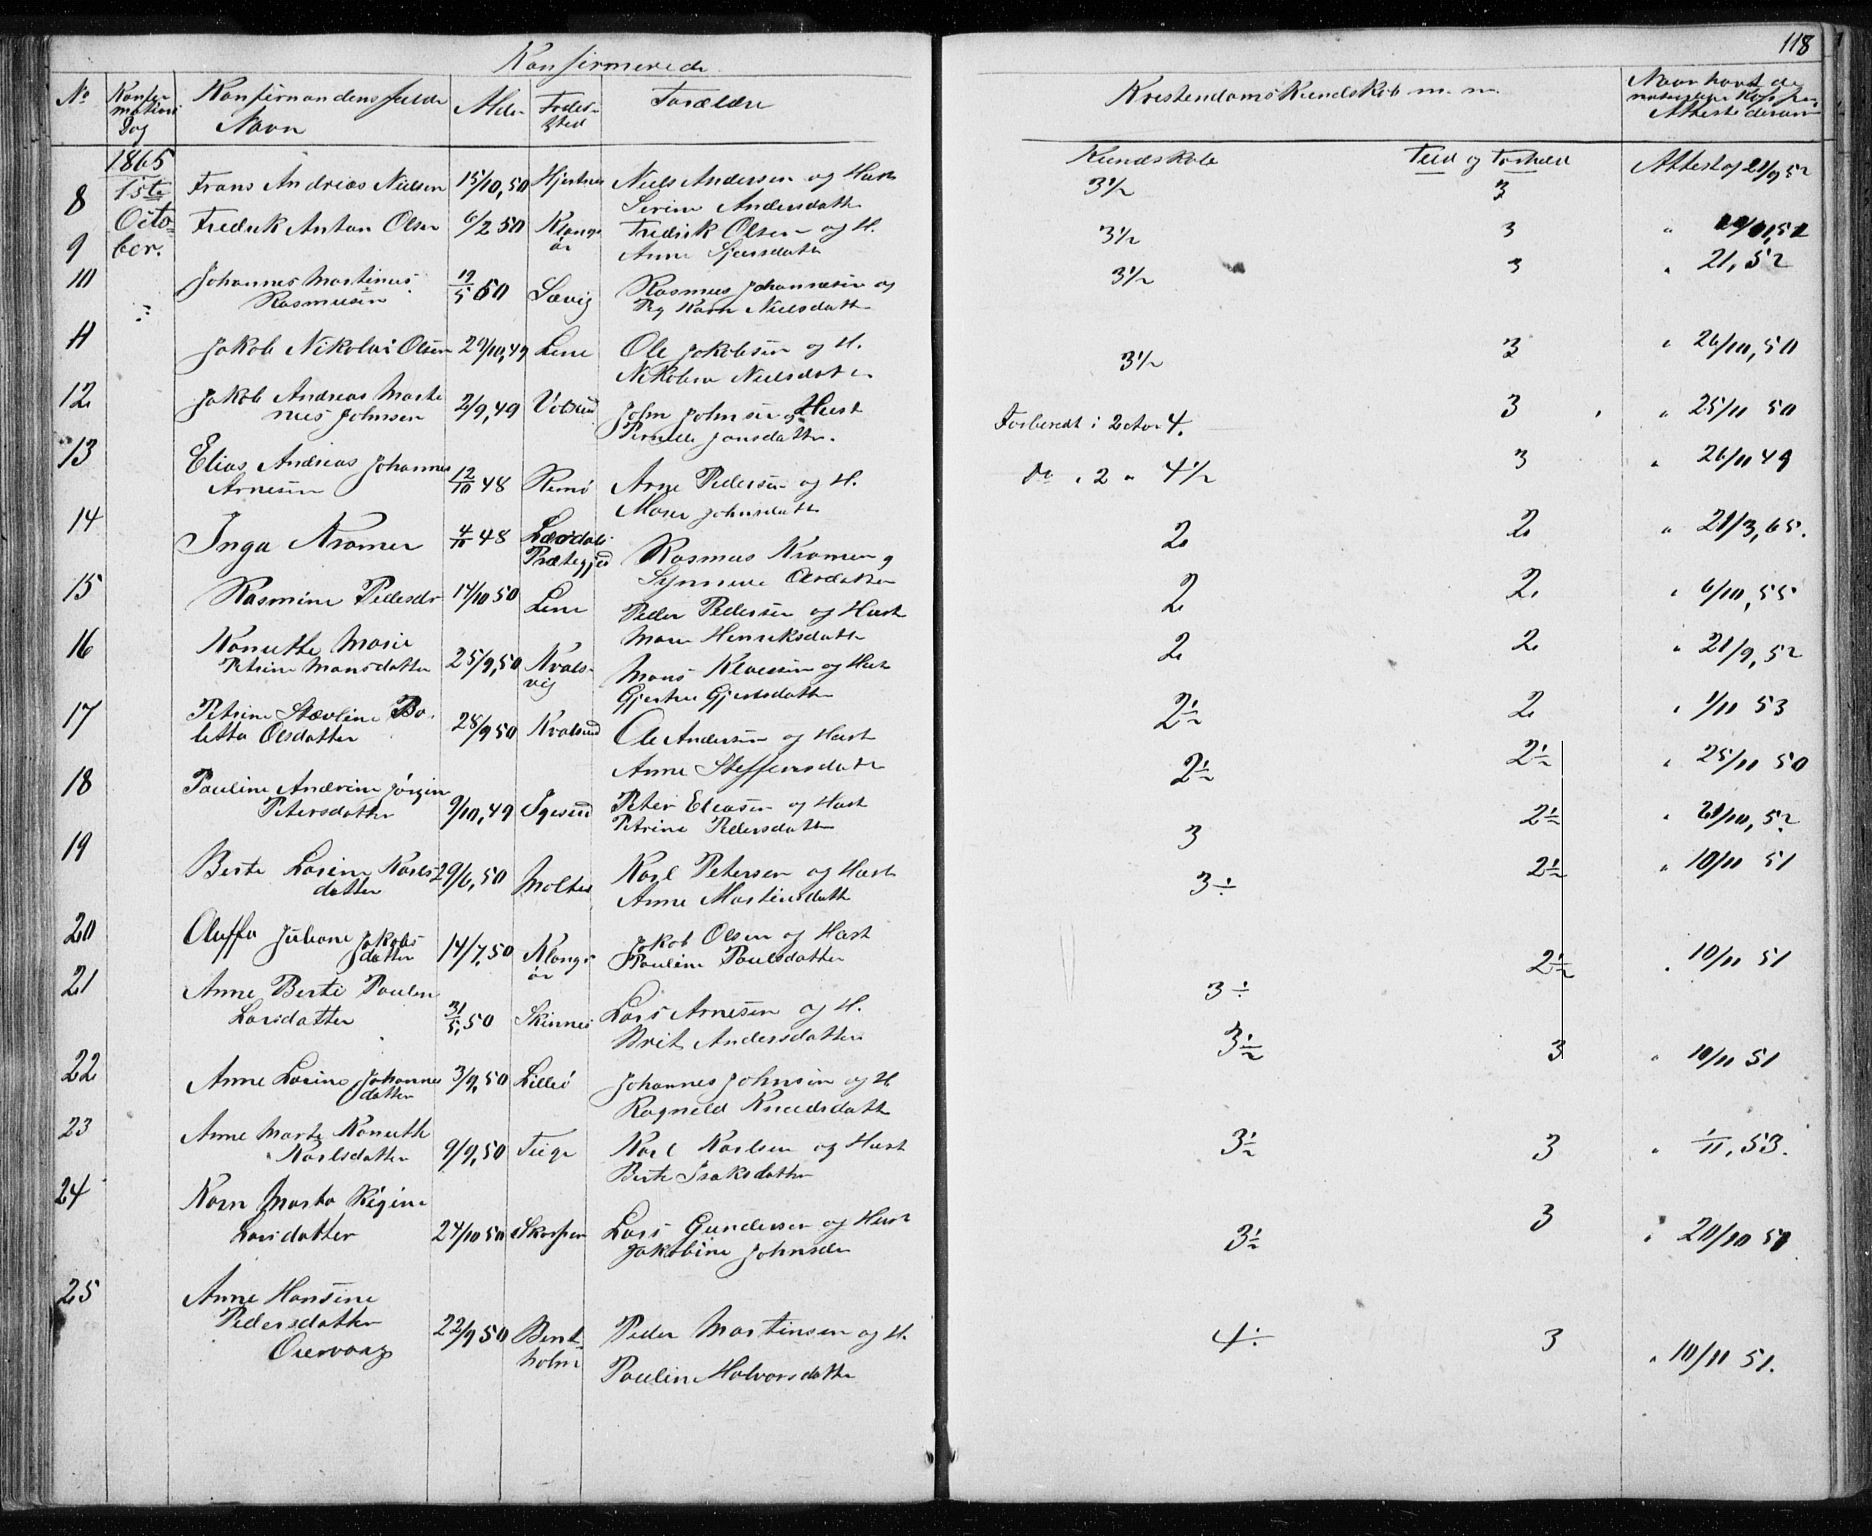 118
Konfirmerede
No
Konfirmations Dag
Konfirmandens fulde Navn
Alder
Fødested
Forældre
Kristendoms Kundskab m. m.
Naar havt de naturlige Kopper
Atteste derom
1865
1ste October.
Kundskab
Flid og Forhold
8 Frans Andreas Nielsen 15/10, 50 Hjertnes Niels Andersen og Hust
Serine Andersdatter
3½ 3 Attest af 21/9 52
9 Fredrik Anton Olsen 6/2 50 Klungsør Fredrik Olsen og H.
Anne Sjursdatter
3½ 3
10 Johannes Martinus
Rasmusen
19/5 50 Sævig Rasmus Johannesen og
Karn Nielsdatter
3½ 3 " 21, 52
11 Jakob Nikolai Olsen 29/10, 49 Leine Ole Jakobsen og H.
Nikoline Nielsdatter
3½ 3 " 26/10, 50
12 Jakob Andreas Marti
nus Johnsen
2/9, 49 Votsund John Johnsen og Hust
Pernille Jonsdatter.
Forberedt i 2 Aar 4. 3 " 25/11 50
13 Elias Andreas Johannes
Arnesen
12/10 48 Remø Arne Pedersen og H.
Maren Johnsdatter
do i 2 " 4½ 3 " 26/11 49
14 Inga Kramer 4/10 48 Lærdals
Præstegjed
Rasmus Kramer og
Synneve Olsdatter
2 2 " 21/3, 65.
15 Rasmine Pedersdr 17/10 50 Leine Peder Pedersen og Hust
Maren Henriksdatter
2 2 " 6/10, 55
16 Kanutte Marie
Petrine Monsdatter
25/9, 50 Kvalsvig Mons Klaussen og Hust
Gjertru Gjertsdatter
2 2 " 21/9, 52
17 Petrine Stævline Bo
letta Olsdatter
28/9 50 Kvalsund Ole Andersen og Hust
Anne Steffensdatter
2½ 2 " 1/11 53
18 Pauline Andrine Jørgine
Petersdatter
9/10, 49 Igesund Peter Eliasen og Hust
Petrine Pedersdatter
2½ 2½ " 25/11 50
19 Berte Lovise Karls
datter
29/6, 50 Moltu Karl Petersen og Hust
Anne Martinsdatt
3 2½ " 21/10, 52
20 Oluffa Juliane Jakobs
datter
14/7, 50 Klungsør Jakob Olsen og Hust
Pauline Paulsdatter
3÷ 2½ " 10/11 51
21 Anne Berte Pauline
Larsdatter
31/5, 50 Skinnes Lars Arnesen og H.
Brit Andersdatter
3÷ 2½ " 10/11 51
22 Anne Lovise Johannes
datter
3/9, 50 Lillø Johannes Johnsen og H
Ragnild Knudsdatt
3½ 3 " 10/11 51
23 Anne Marte Kanutte
Karlsdatter
9/9, 50 Teige Karl Karlsen og Hust
Berte Isaksdatter
3½ 3 " 1/11, 53.
24 Karn Marta Regine
Larsdatter
24/10 50 Skorpen Lars Gundersen og Hust
Jakobine Johnsda
3½ 3 " 20/10 51
25 Anne Hansine
Pedersdatter
Overvaag
22/9 50 Bentholm Peder Martinsen og H.
Pauline Halvorsdatter
4÷ 3 " 10/11 51.